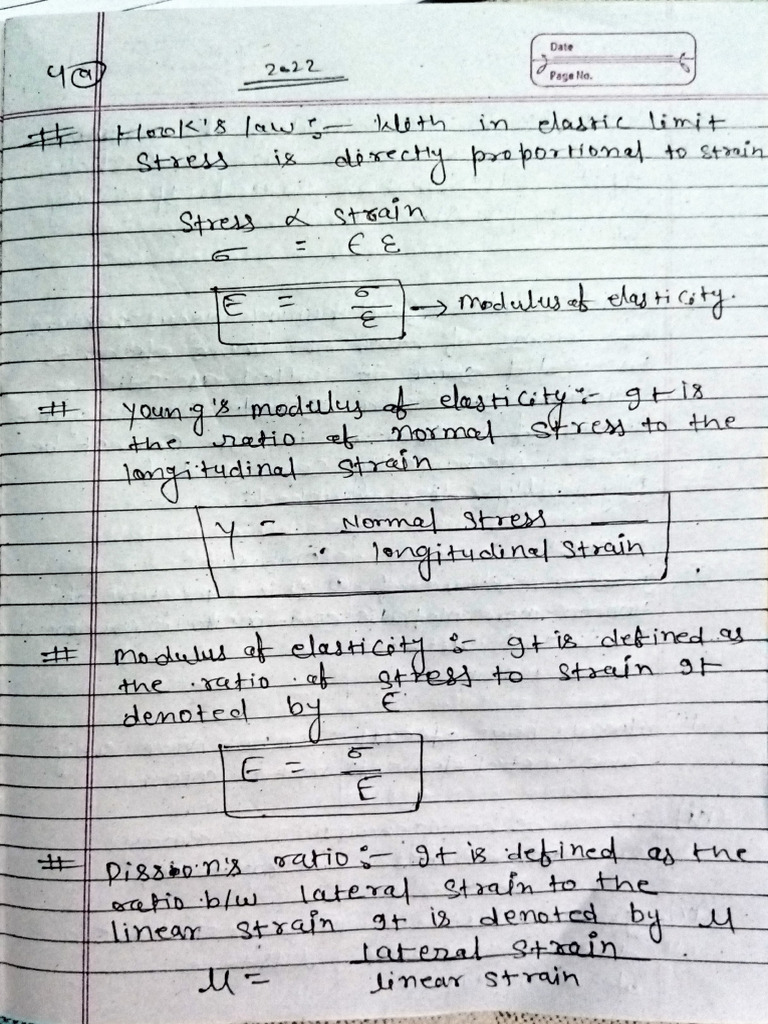 4(a)
2022
Date
Page No.
# Hook's law :- With in elastic limit
Stress is directly proportional to strain
Stress ∝ strain
σ = E ε
E = σ/ε → modulus of elasticity.
# Young's modulus of elasticity :- It is
the ratio of normal stress to the
longitudinal strain
Y = Normal stress
longitudinal strain
# Modulus of elasticity :- It is defined as
the ratio of stress to strain It
denoted by E
E = σ/E
# Pission's ratio :- It is defined as the
ratio b/w lateral strain to the
linear strain It is denoted by μ
lateral strain
μ = linear strain